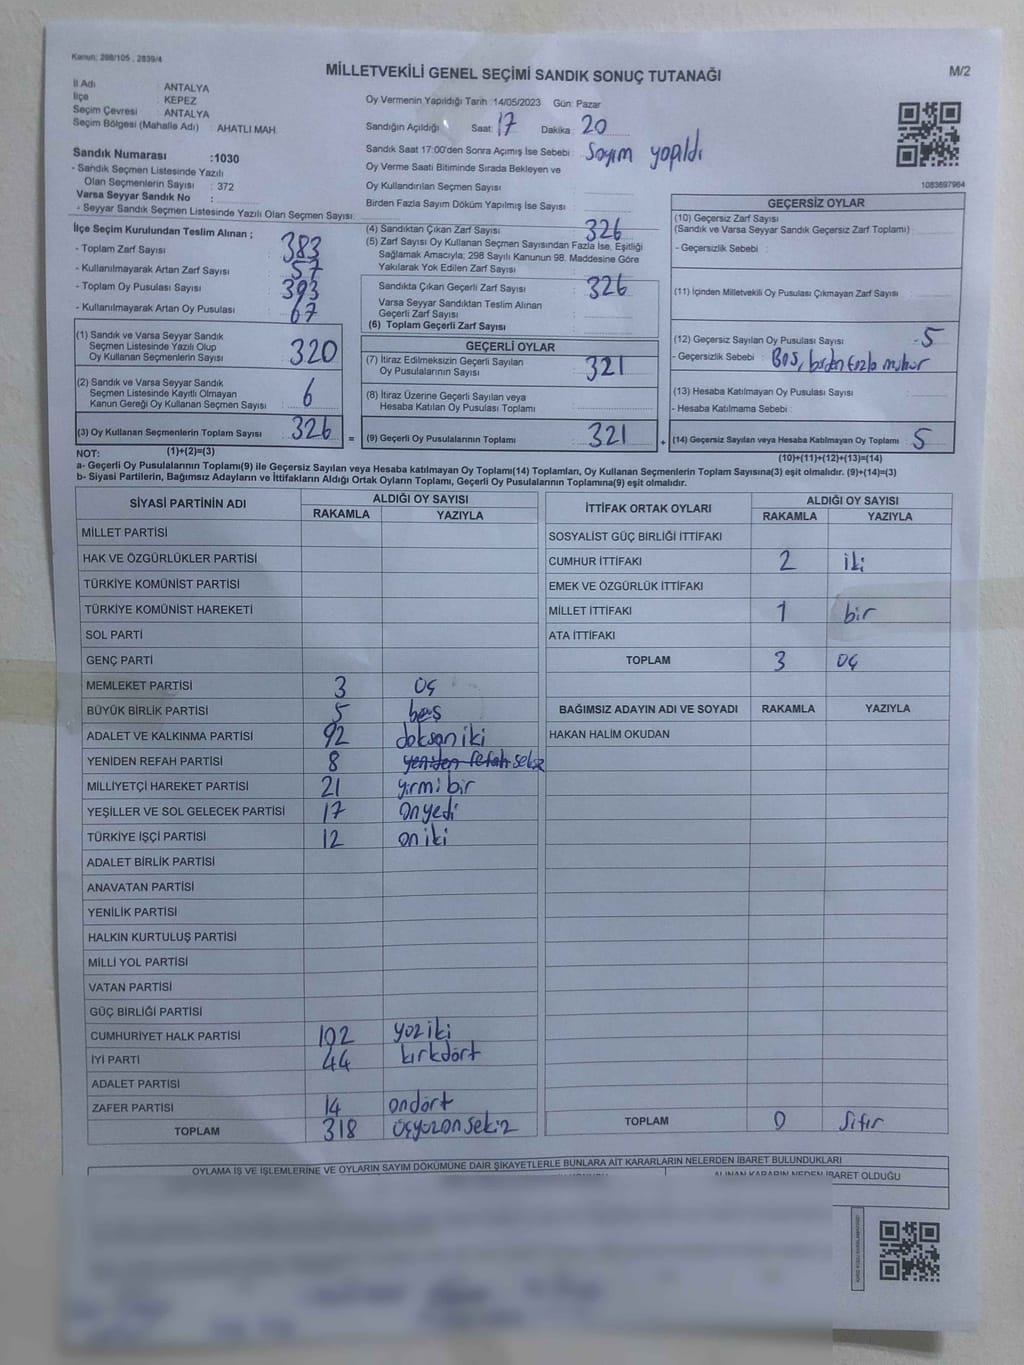 Kanun: 298/105 , 2839/4
MİLLETVEKİLİ GENEL SEÇİMİ SANDIK SONUÇ TUTANAĞI
M/2
İl Adı : ANTALYA
İlçe : KEPEZ
Seçim Çevresi : ANTALYA
Seçim Bölgesi (Mahalle Adı) : AHATLI MAH.
Sandık Numarası :1030
- Sandık Seçmen Listesinde Yazılı
Olan Seçmenlerin Sayısı : 372
Varsa Seyyar Sandık No :
- Seyyar Sandık Seçmen Listesinde Yazılı Olan Seçmen Sayısı:
Oy Vermenin Yapıldığı Tarih :14/05/2023 Gün: Pazar
Sandığın Açıldığı Saat: 17 Dakika: 20
Sandık Saat 17:00'den Sonra Açımış İse Sebebi : Sayım yapıldı
Oy Verme Saati Bitiminde Sırada Bekleyen ve
Oy Kullandırılan Seçmen Sayısı
Birden Fazla Sayım Döküm Yapılmış İse Sayısı :
1083697964
İlçe Seçim Kurulundan Teslim Alınan ;
- Toplam Zarf Sayısı : 383
- Kullanılmayarak Artan Zarf Sayısı : 57
- Toplam Oy Pusulası Sayısı : 393
- Kullanılmayarak Artan Oy Pusulası : 67
(1) Sandık ve Varsa Seyyar Sandık
Seçmen Listesinde Yazılı Olup
Oy Kullanan Seçmenlerin Sayısı : 320
(2) Sandık ve Varsa Seyyar Sandık
Seçmen Listesinde Kayıtlı Olmayan
Kanun Gereği Oy Kullanan Seçmen Sayısı : 6
(3) Oy Kullanan Seçmenlerin Toplam Sayısı : 326
(4) Sandıktan Çıkan Zarf Sayısı : 326
(5) Zarf Sayısı Oy Kullanan Seçmen Sayısından Fazla İse, Eşitliği
Sağlamak Amacıyla; 298 Sayılı Kanunun 98. Maddesine Göre
Yakılarak Yok Edilen Zarf Sayısı :
Sandıkta Çıkan Geçerli Zarf Sayısı : 326
Varsa Seyyar Sandıktan Teslim Alınan
Geçerli Zarf Sayısı :
(6) Toplam Geçerli Zarf Sayısı :
GEÇERLİ OYLAR
(7) İtiraz Edilmeksizin Geçerli Sayılan
Oy Pusulalarının Sayısı : 321
(8) İtiraz Üzerine Geçerli Sayılan veya
Hesaba Katılan Oy Pusulası Toplamı :
= (9) Geçerli Oy Pusulalarının Toplamı : 321
GEÇERSİZ OYLAR
(10) Geçersiz Zarf Sayısı
(Sandık ve Varsa Seyyar Sandık Geçersiz Zarf Toplamı) :
- Geçersizlik Sebebi :
(11) İçinden Milletvekili Oy Pusulası Çıkmayan Zarf Sayısı :
(12) Geçersiz Sayılan Oy Pusulası Sayısı : 5
- Geçersizlik Sebebi : Boş, birden fazla mühür
(13) Hesaba Katılmayan Oy Pusulası Sayısı :
- Hesaba Katılmama Sebebi :
+ (14) Geçersiz Sayılan veya Hesaba Katılmayan Oy Toplamı : 5
NOT: (1)+(2)=(3)
(10)+(11)+(12)+(13)=(14)
a- Geçerli Oy Pusulalarının Toplamı(9) ile Geçersiz Sayılan veya Hesaba katılmayan Oy Toplamı(14) Toplamları, Oy Kullanan Seçmenlerin Toplam Sayısına(3) eşit olmalıdır. (9)+(14)=(3)
b- Siyasi Partilerin, Bağımsız Adayların ve İttifakların Aldığı Ortak Oyların Toplamı, Geçerli Oy Pusulalarının Toplamına(9) eşit olmalıdır.
SİYASİ PARTİNİN ADI ALDIĞI OY SAYISI
RAKAMLA YAZIYLA
MİLLET PARTİSİ
HAK VE ÖZGÜRLÜKLER PARTİSİ
TÜRKİYE KOMÜNİST PARTİSİ
TÜRKİYE KOMÜNİST HAREKETİ
SOL PARTİ
GENÇ PARTİ
MEMLEKET PARTİSİ 3 üç
BÜYÜK BİRLİK PARTİSİ 5 beş
ADALET VE KALKINMA PARTİSİ 92 doksaniki
YENİDEN REFAH PARTİSİ 8 yeniden refah sekiz
MİLLİYETÇİ HAREKET PARTİSİ 21 yirmibir
YEŞİLLER VE SOL GELECEK PARTİSİ 17 Onyedi
TÜRKİYE İŞÇİ PARTİSİ 12 oniki
ADALET BİRLİK PARTİSİ
ANAVATAN PARTİSİ
YENİLİK PARTİSİ
HALKIN KURTULUŞ PARTİSİ
MİLLİ YOL PARTİSİ
VATAN PARTİSİ
GÜÇ BİRLİĞİ PARTİSİ
CUMHURİYET HALK PARTİSİ 102 yüziki
İYİ PARTİ 44 kırkdört
ADALET PARTİSİ
ZAFER PARTİSİ 14 ondört
TOPLAM 318 üçyüzonsekiz
İTTİFAK ORTAK OYLARI ALDIĞI OY SAYISI
RAKAMLA YAZIYLA
SOSYALİST GÜÇ BİRLİĞİ İTTİFAKI
CUMHUR İTTİFAKI 2 iki
EMEK VE ÖZGÜRLÜK İTTİFAKI
MİLLET İTTİFAKI 1 bir
ATA İTTİFAKI
TOPLAM 3 üç
BAĞIMSIZ ADAYIN ADI VE SOYADI RAKAMLA YAZIYLA
HAKAN HALİM OKUDAN
TOPLAM 0 sıfır
OYLAMA İŞ VE İŞLEMLERİNE VE OYLARIN SAYIM DÖKÜMÜNE DAİR ŞİKAYETLERLE BUNLARA AİT KARARLARIN NELERDEN İBARET BULUNDUKLARI
ALINAN KARARIN NEDEN İBARET OLDUĞU